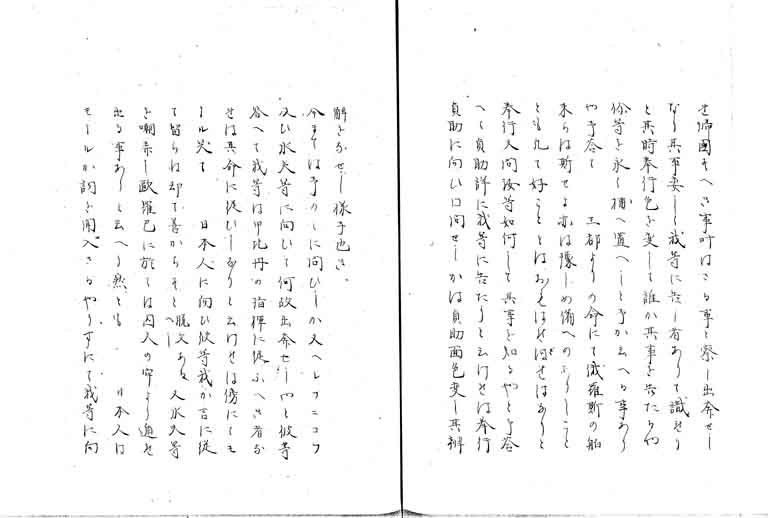 せ帰國すへき事叶はさる事と察し出奔せし
なり其事委しく我等に告し者ありて識せり
と其時奉行色を変して誰か其事を告たるや
你等を永く捕へ置へしと予か云へる事あり
や予答て 王都よりの命にて俄羅斯の船
来らは斯せよ亦は豫しめ備へのよろしきこと
とも凡て好こととはおもはせ
奉行又問汝等如何して其事を知るやと予答
へて貞助詳に我等に告たりと云けれは奉行
貞助に向ひ口問せしかは貞助面色変し其辨
解をなせし様子也き、
今まては予のミに問ひしか又ヘレフニコフ
及ひ水夫等に向いて何故出奔せしやと彼等
答へて我等は甲比丹の指揮に従ふへき者な
れは其命に従いしなりと云けれは傍にてモ
ール笑て 日本人に向ひ彼等我か言に従
て留らは却て善からそと脱文あるへし又水夫等
を嘲弄し歐羅巴に於ては囚人の牢より逃れ
出る事ありと云へり然とも 日本人は
モールか詞を聞入さるやうすにて我等に向